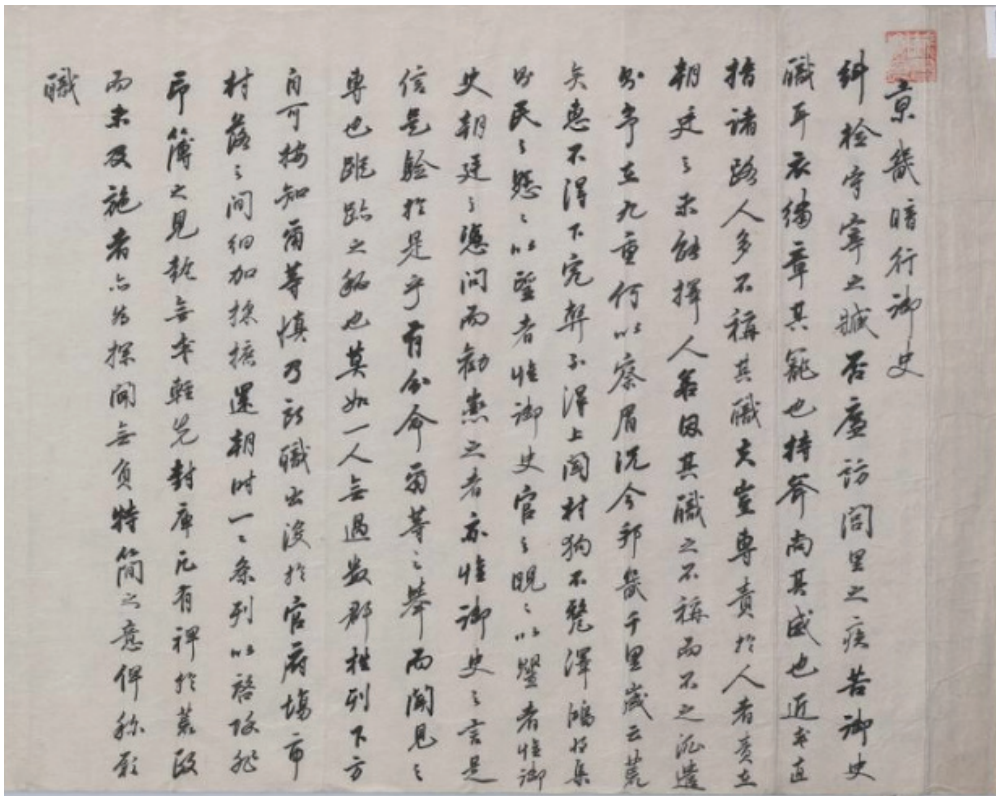 京畿暗行御史
糾檢守宰之臧否廉訪閭里之疾苦御史
職耳衣繡章其寵也持斧尚其威也近來直
指諸路人多不稱其職夫豈專責於人者責在
朝廷之未能擇人若因其職之不稱而不之派遣
則予在九重何以察眉況今邦畿千里歲云荒
矣惠不得下究弊不得上聞村狗不驚澤鴻將集
則民之懸懸以望者惟御史官之睍睍以瞿者惟御
史朝廷之憑問而勸懲之者亦惟御史之言是
信是驗於是乎有分命爾等之擧而聞見之
專也蹤跡之秘也莫如一人無過數郡列下方
自可按知爾等愼乃所職出沒於官府場市
村落之間細加採摭還朝時一一條列以啓
印簿之見無輕先封庫凡有裨於荒政
而未及施者亦爲探聞無負特簡之意俾稱厥
職